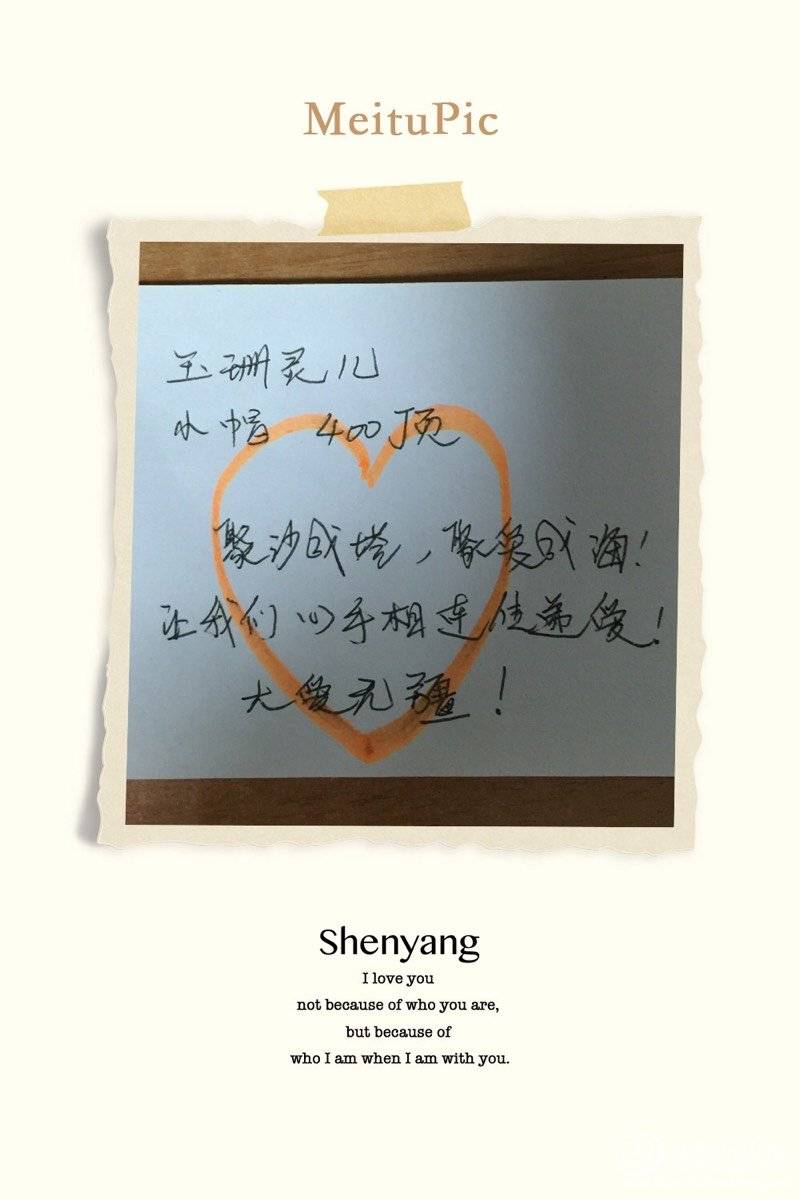 MeituPic
玉珊灵儿
小帽 400顶
聚沙成塔，聚爱成海！
让我们心手相连传递爱！
大爱无疆！
Shenyang
I love you
not because of who you are,
but because of
who I am when I am with you.